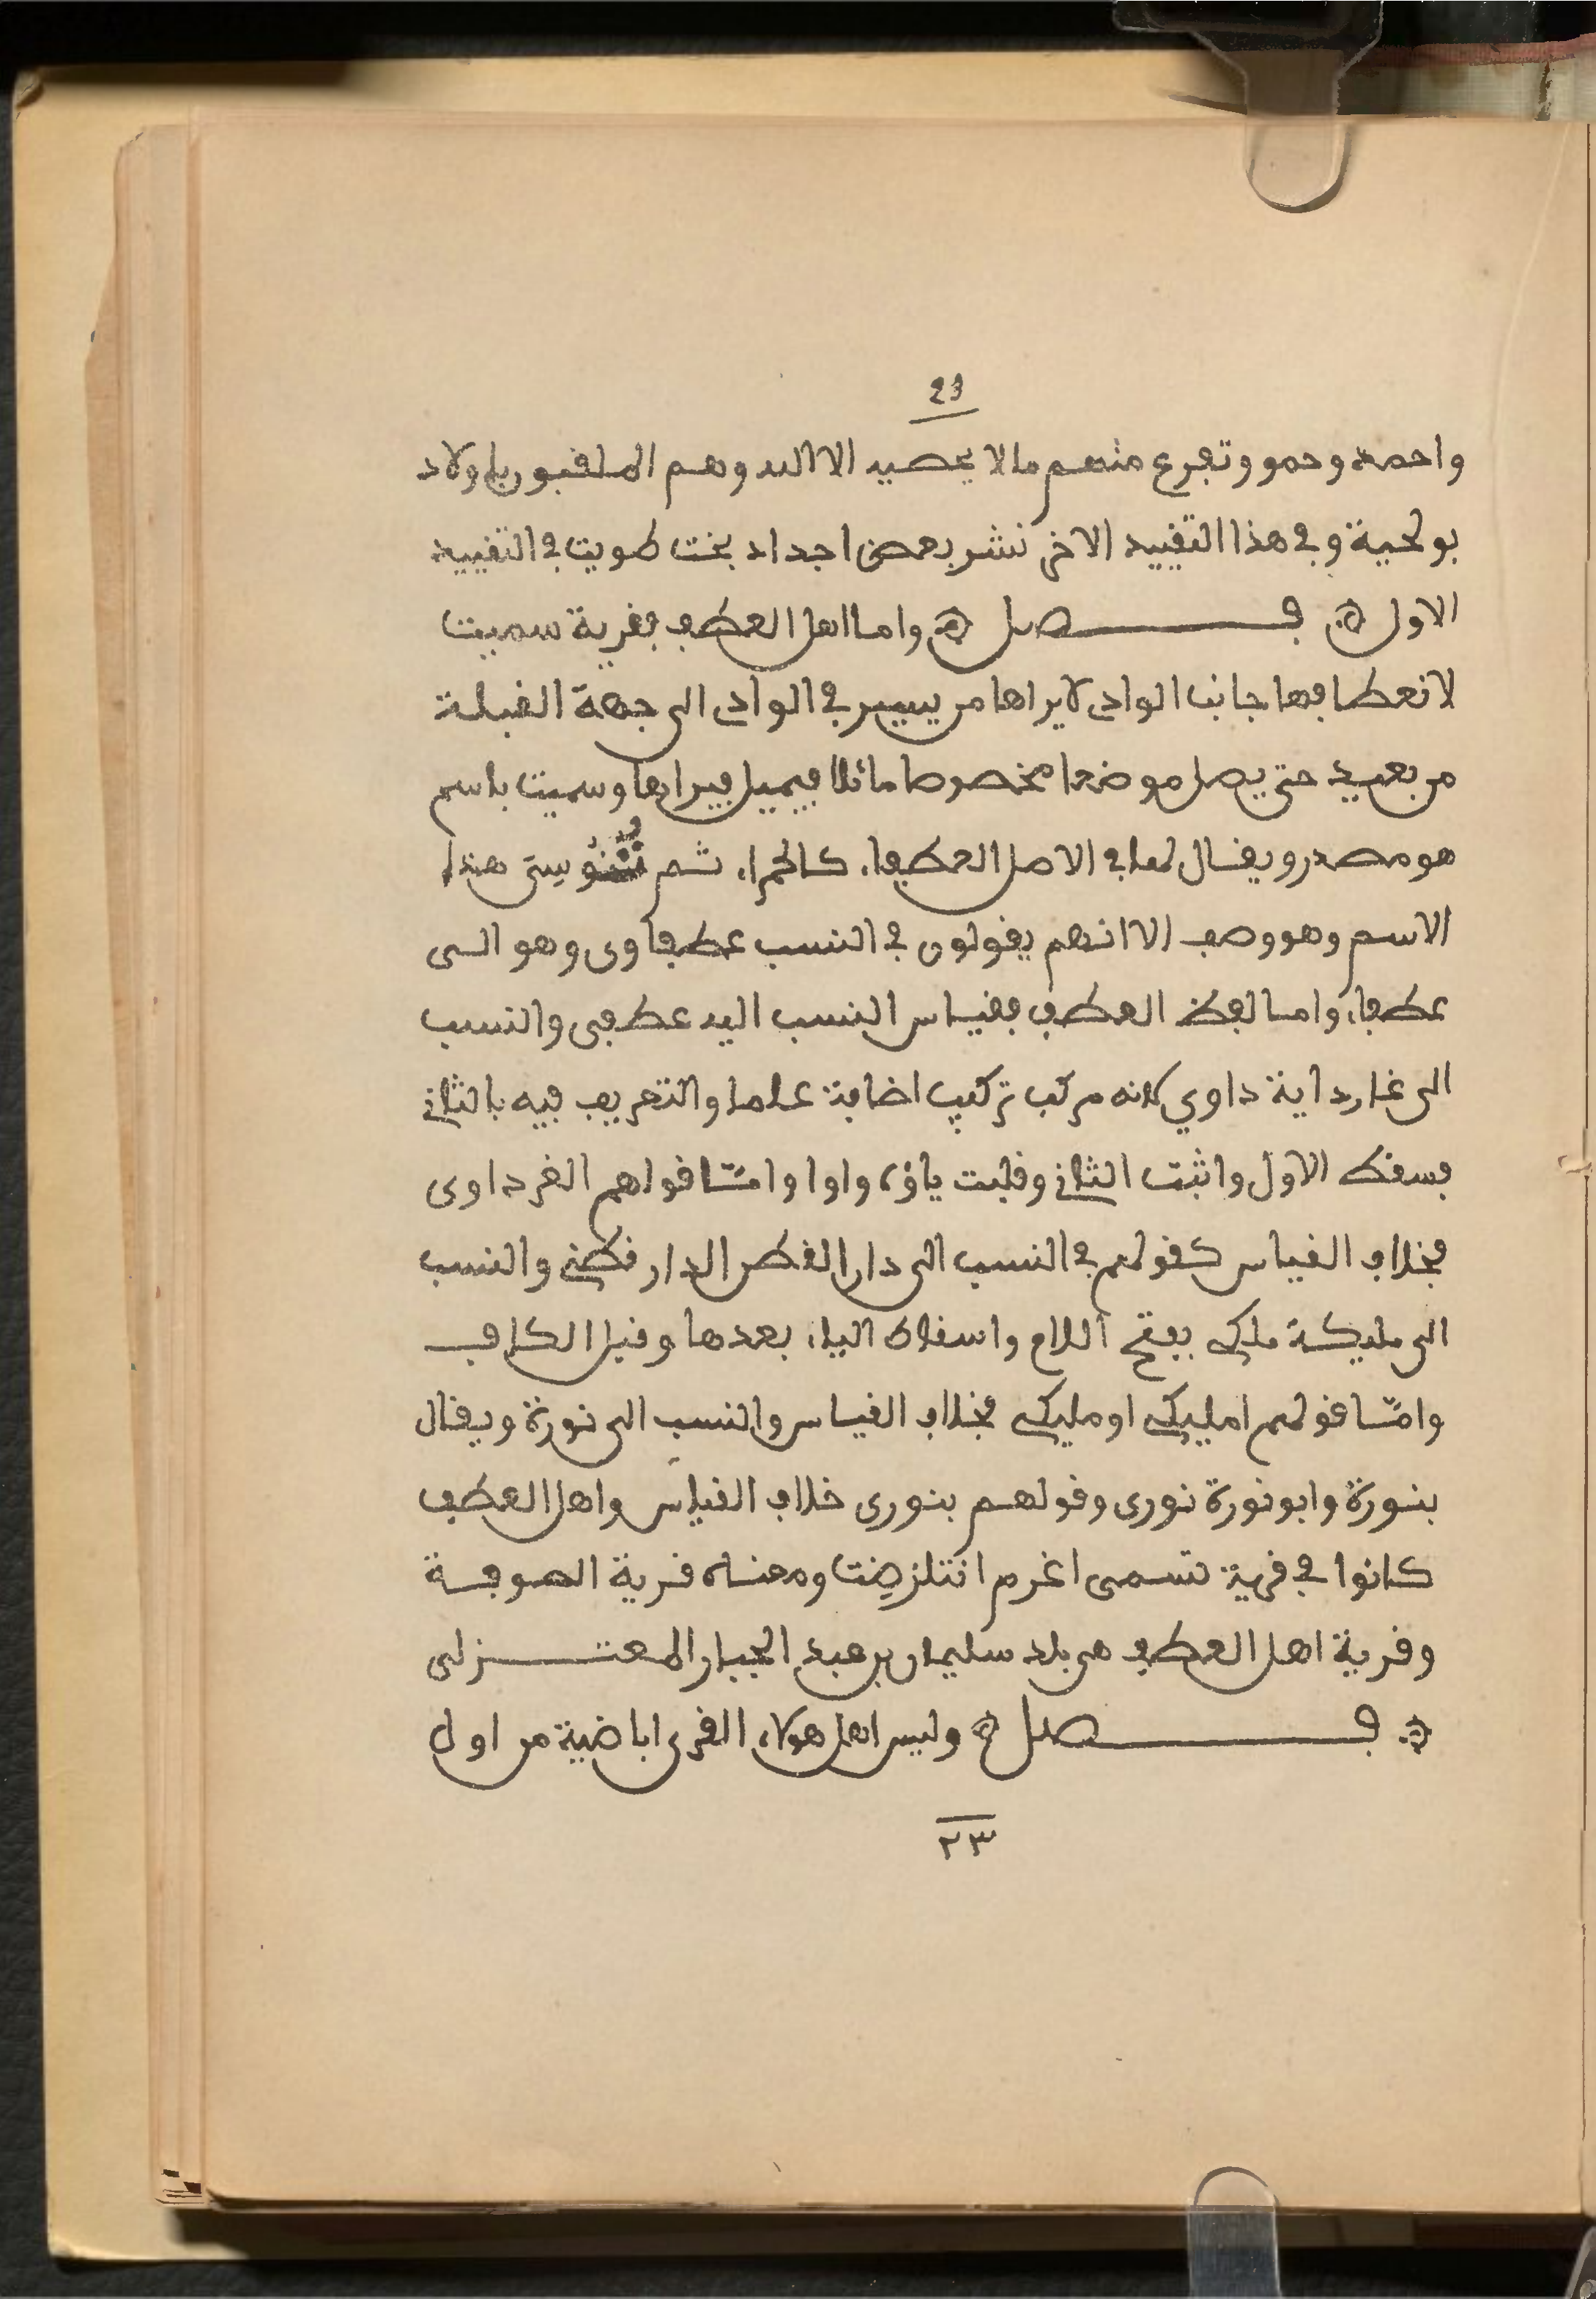 23
واحمد وحمو وتفرع منهم ما لا يحصيه الا الله وهم الملقبون باولاد
بولحية وفي هذا التقييد الاخر نشر بعض اجداد بخت طويت في التقييد
الاول ۞ فصل ۞ واما اهل العطف فقرية سميت
لانعطافها جانب الوادى لا يراها من يسير في الوادى الى جهة القبلة
من بعيد حتى يصل موضعا مخصوصا مائلا فيميل فيراها وسميت باسم
هو مصدر ويقال لها في الاصل العطفاء كالحمراء ثم تنوسى هذا
الاسم وهو وصف الا انهم يقولون في النسب عطفاوى وهو الى
عطفاء واما لفظ العطف فقياس النسب اليه عطفى والنسب
الى غارداية داوي لانه مركب تركيب اضافة علما والتعريف فيه بالثاني
فسقط الاول واثبت الثاني وقلبت ياؤه واوا وامّا قولهم الغرداوى
فخلاف القياس كقولهم في النسب الى دار القطن الدارقطني والنسب
الى مليكة ملكي بفتح اللام واسقاط الياء بعدها وقبل الكاف
وامّا قولهم امليكي او مليكي فخلاف القياس والنسب الى نورة ويقال
بنورة وابو نورة نورى وقولهم بنورى خلاف القياس واهل العطف
كانوا في قرية تسمى اغرم انتلزضت ومعناه قرية الصوفة
وقرية اهل العطف هى بلد سليمان بن عبد الجبار المعتزلى
۞ فصل ۞ وليس اهل هولاء القرى اباضية من اول
٢٣